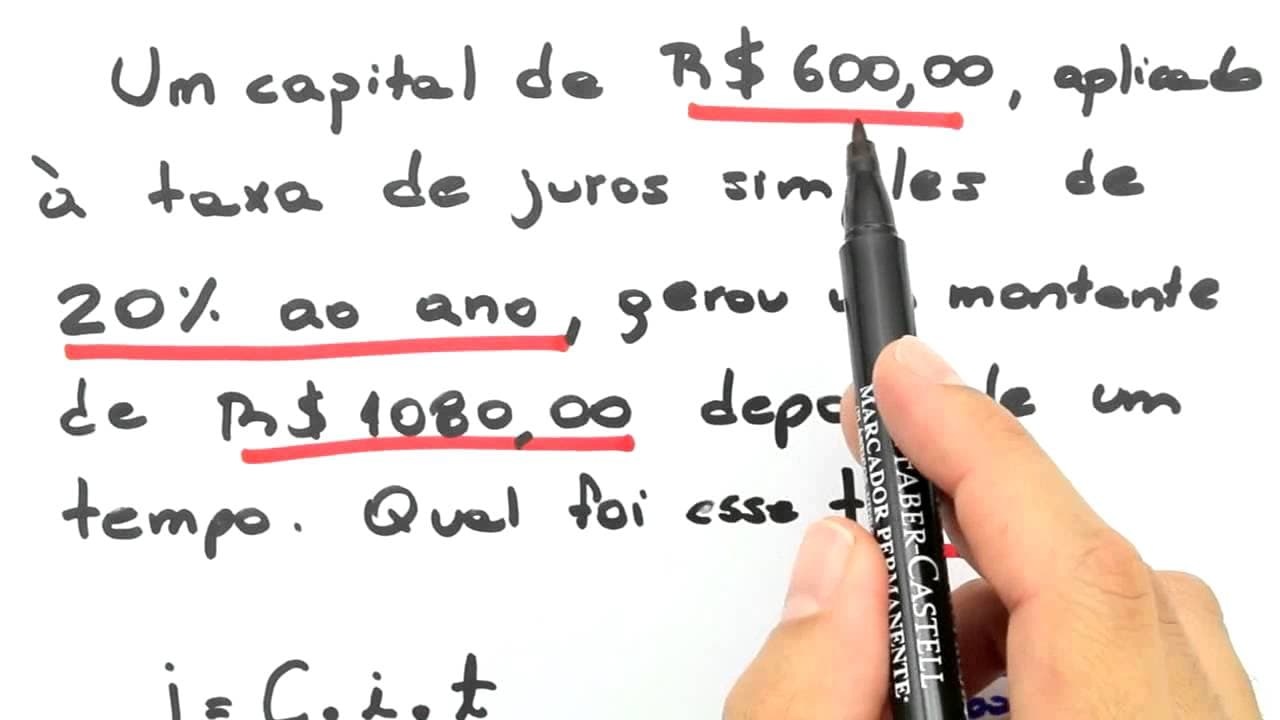 Um capital de R$ 600,00, aplicado
à taxa de juros simples de
20% ao ano, gerou montante
de R$ 1080,00 de um
tempo. Qual foi esse
j = C.i.t
FABER-CASTELL
MARCADOR PERMANENTE